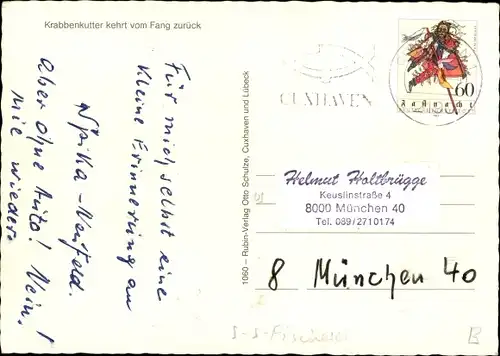 Krabbenkutter kehrt vom Fang zurück
Für mich selbst eine
kleine Erinnerung an
Spika-Neufeld.
Aber ohne Auto! Nein!
nie wieder.
1060 – Rubin-Verlag Otto Schulze, Cuxhaven und Lübeck
CUXHAVEN
60
Fastnacht
Helmut Holtbrügge
Keuslinstraße 4
8000 München 40
Tel. 089/2710174
8 München 40
B